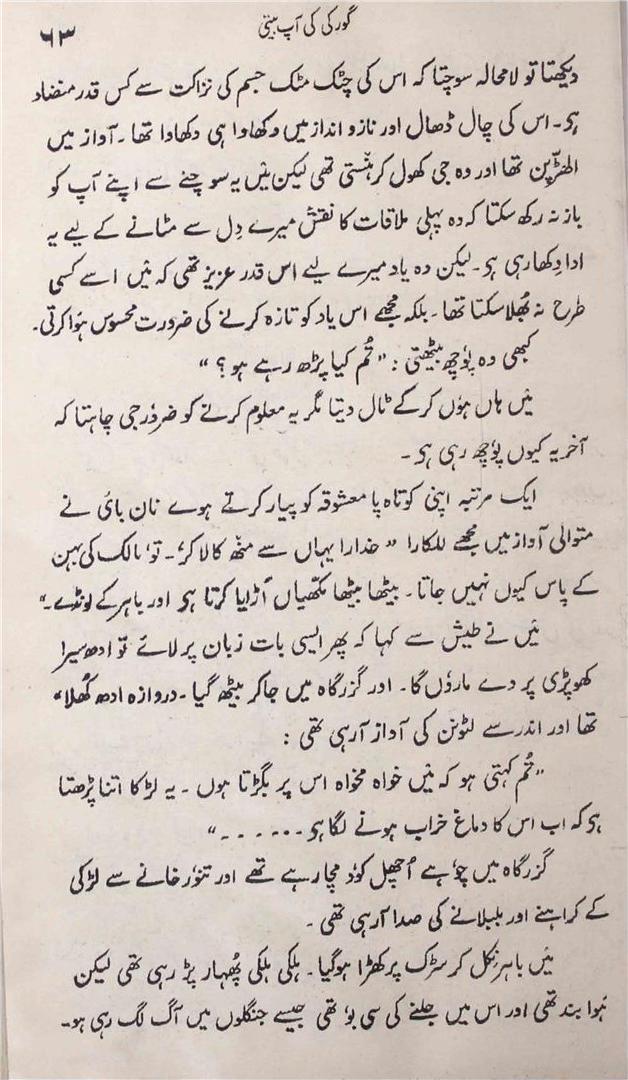 ۶۳
گورکی کی آپ بیتی
دیکھتا تو لا محالہ سوچتا کہ اس کی چٹک مٹک جسم کی نزاکت سے کس قدر متضاد
ہی۔ اس کی چال ڈھال اور ناز و انداز میں دکھاوا ہی دکھاوا تھا۔ آواز میں
الھڑپن تھا اور وہ جی کھول کر ہنستی تھی لیکن مَیں یہ سوچنے سے اپنے آپ کو
باز نہ رکھ سکتا کہ وہ پہلی ملاقات کا نقش میرے دِل سے مٹانے کے لیے یہ
ادا دِکھا رہی ہی۔ لیکن وہ یاد میرے لیے اس قدر عزیز تھی کہ مَیں اسے کسی
طرح نہ بُھلا سکتا تھا۔ بلکہ مجھے اس یاد کو تازہ کرنے کی ضرورت محسوس ہوا کرتی۔
کبھی وہ پوٗچھ بیٹھتی : ”تُم کیا پڑھ رہے ہو؟ “
مَیں ہاں ہوٗں کرکے ٹال دیتا مگر یہ معلوم کرنے کو ضروٗر جی چاہتا کہ
آخر یہ کیوں پوٗچھ رہی ہی۔
ایک مرتبہ اپنی کوتاہ پا معشوقہ کو پیار کرتے ہوے نان بائ نے
متوالی آواز میں مجھے للکارا ” خدارا یہاں سے منھ کالا کر۔ توٗ مالک کی بہن
کے پاس کیوں نہیں جاتا۔ بیٹھا بیٹھا مکھیاں اُڑایا کرتا ہی اور باہر کے لونڈے۔“
مَیں نے طیش سے کہا کہ پھر ایسی بات زبان پر لائے تو ادھ سیرا
کھوپڑی پر دے ماروٗں گا۔ اور گزرگاہ میں جاکر بیٹھ گیا۔ دروازہ ادھ کُھلا“
تھا اور اندر سے لٹونن کی آواز آرہی تھی :
”تُم کہتی ہو کہ مَیں خواہ مخواہ اس پر بگڑتا ہوں۔ یہ لڑکا اتنا پڑھتا
ہی کہ اب اس کا دماغ خراب ہونے لگا ہی ۔۔۔۔۔۔“
گزرگاہ میں چوٗہے اُچھل کوٗد مچا رہے تھے اور تنوٗر خانے سے لڑکی
کے کراہنے اور بلبلانے کی صدا آرہی تھی۔
مَیں باہر نکل کر سڑک پر کھڑا ہوگیا۔ ہلکی ہلکی پُھہار پڑ رہی تھی لیکن
ہَوا بند تھی اور اس میں جلنے کی سی بوٗ تھی جیسے جنگلوں میں آگ لگ رہی ہو۔